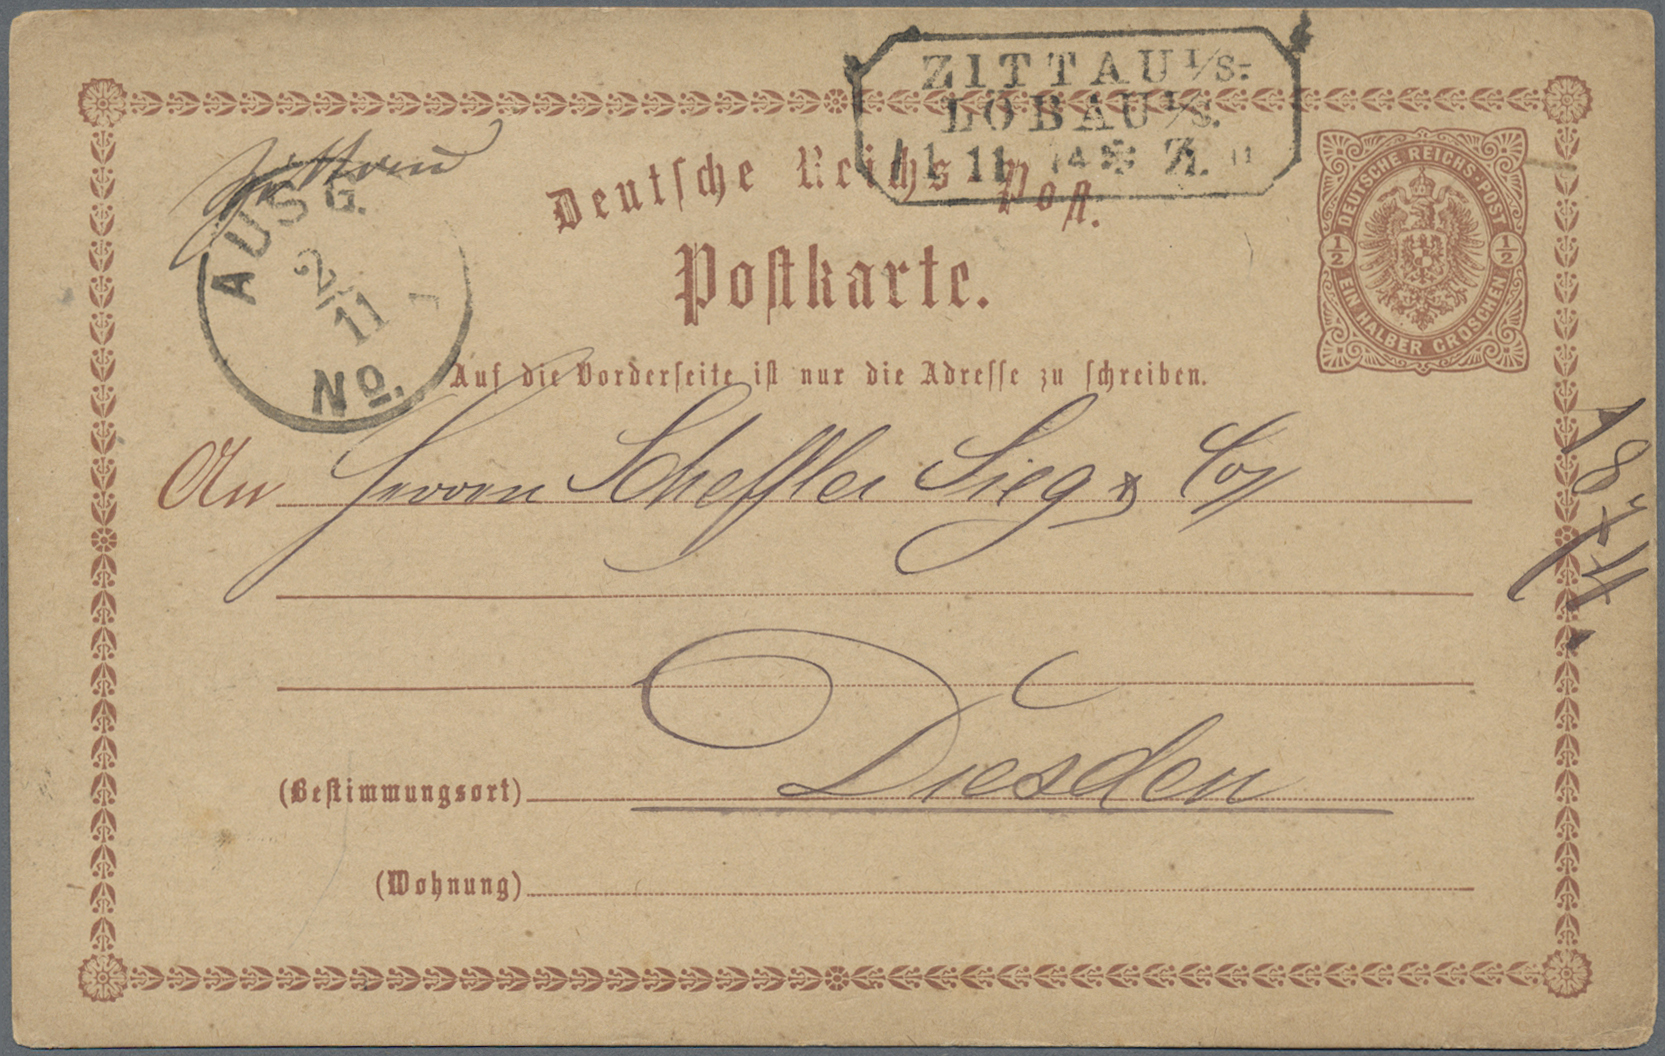 ZITTAU I/S-
LÖBAU I/S.
1 11 74 ✻ Z. II
Zittau
AUSG.
2/11
No.
1
Deutsche Reichs-Post.
Postkarte.
DEUTSCHE REICHS-POST
1/2 1/2
EIN HALBER GROSCHEN
Auf die Vorderseite ist nur die Adresse zu schreiben.
An Herren Scheffler Sieg & Co
(Bestimmungsort) Dresden
(Wohnung)